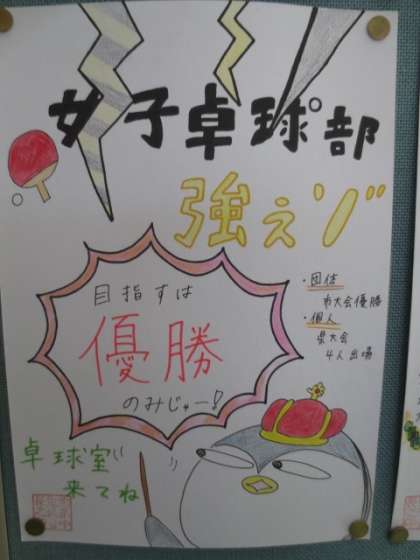 女子卓球部
強えゾ
目指すは
優勝
のみじゃー!
・団体
市大会優勝
・個人
県大会
4人出場
卓球室
来てね